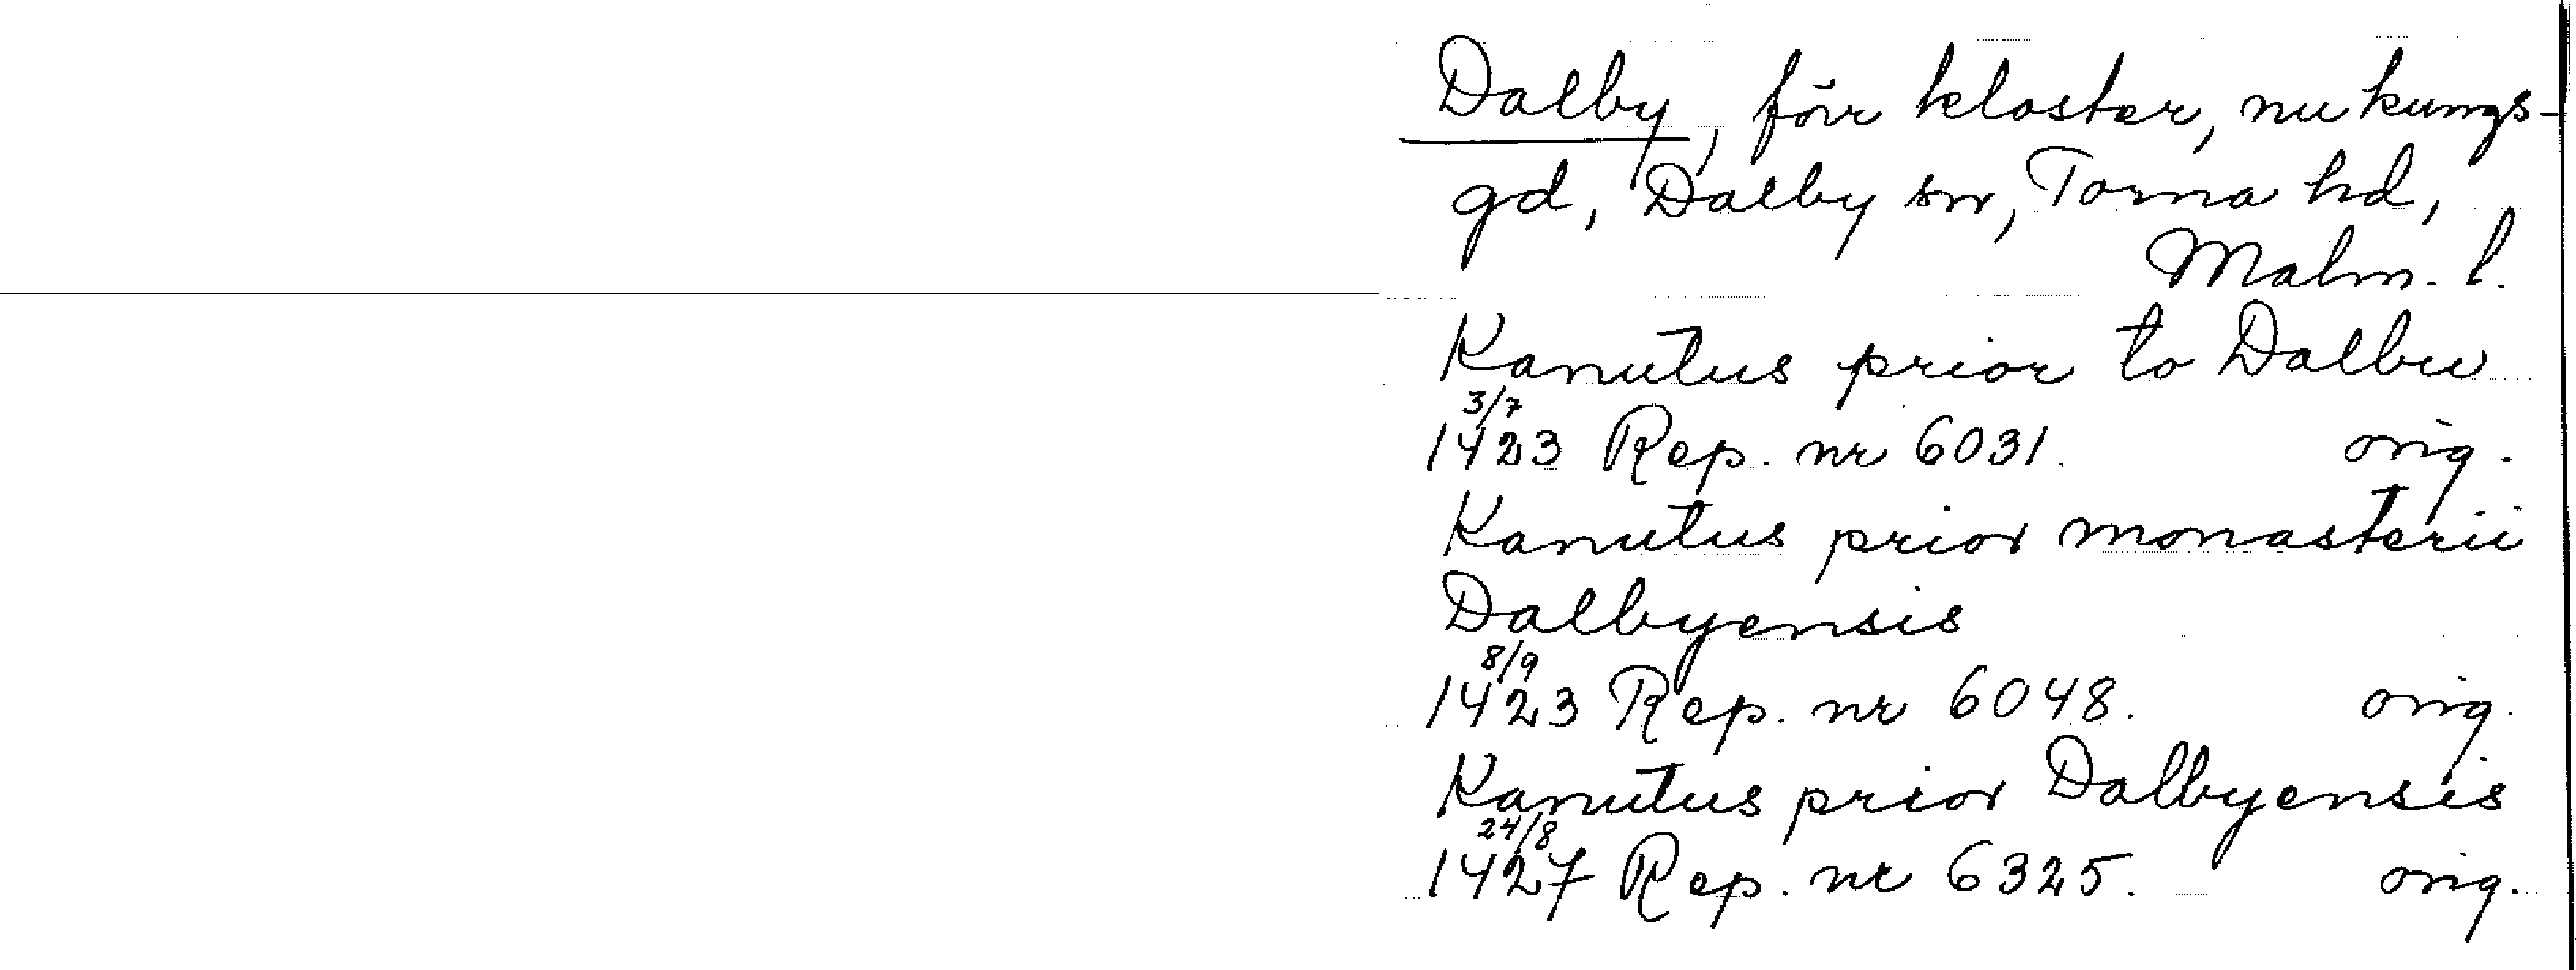 Dalby, förr kloster, nu kungs-
gd, Dalby sn, Torna hd,
Malm. l.
Kanutus prior to Dalbu
3/7
1423 Rep. nr 6031. orig.
Kanutus prior monasterii
Dalbyensis
8/9
1423 Rep. nr 6048. orig.
Kanutus prior Dalbyensis
24/8
1427 Rep. nr 6325. orig.